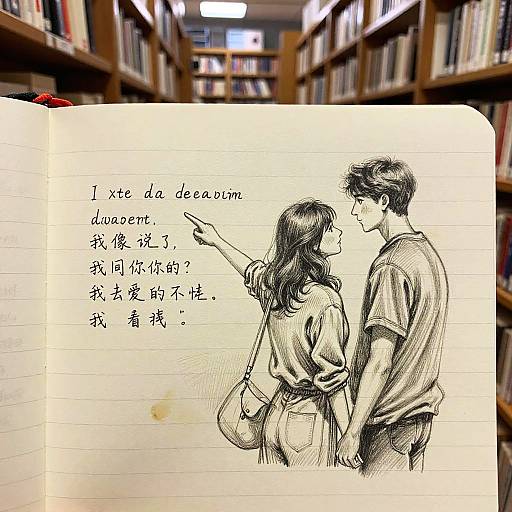 I xte da deeaoim
duaoent.
我像说了,
我同你你的?
我去爱的不怪。
我 看线 "。